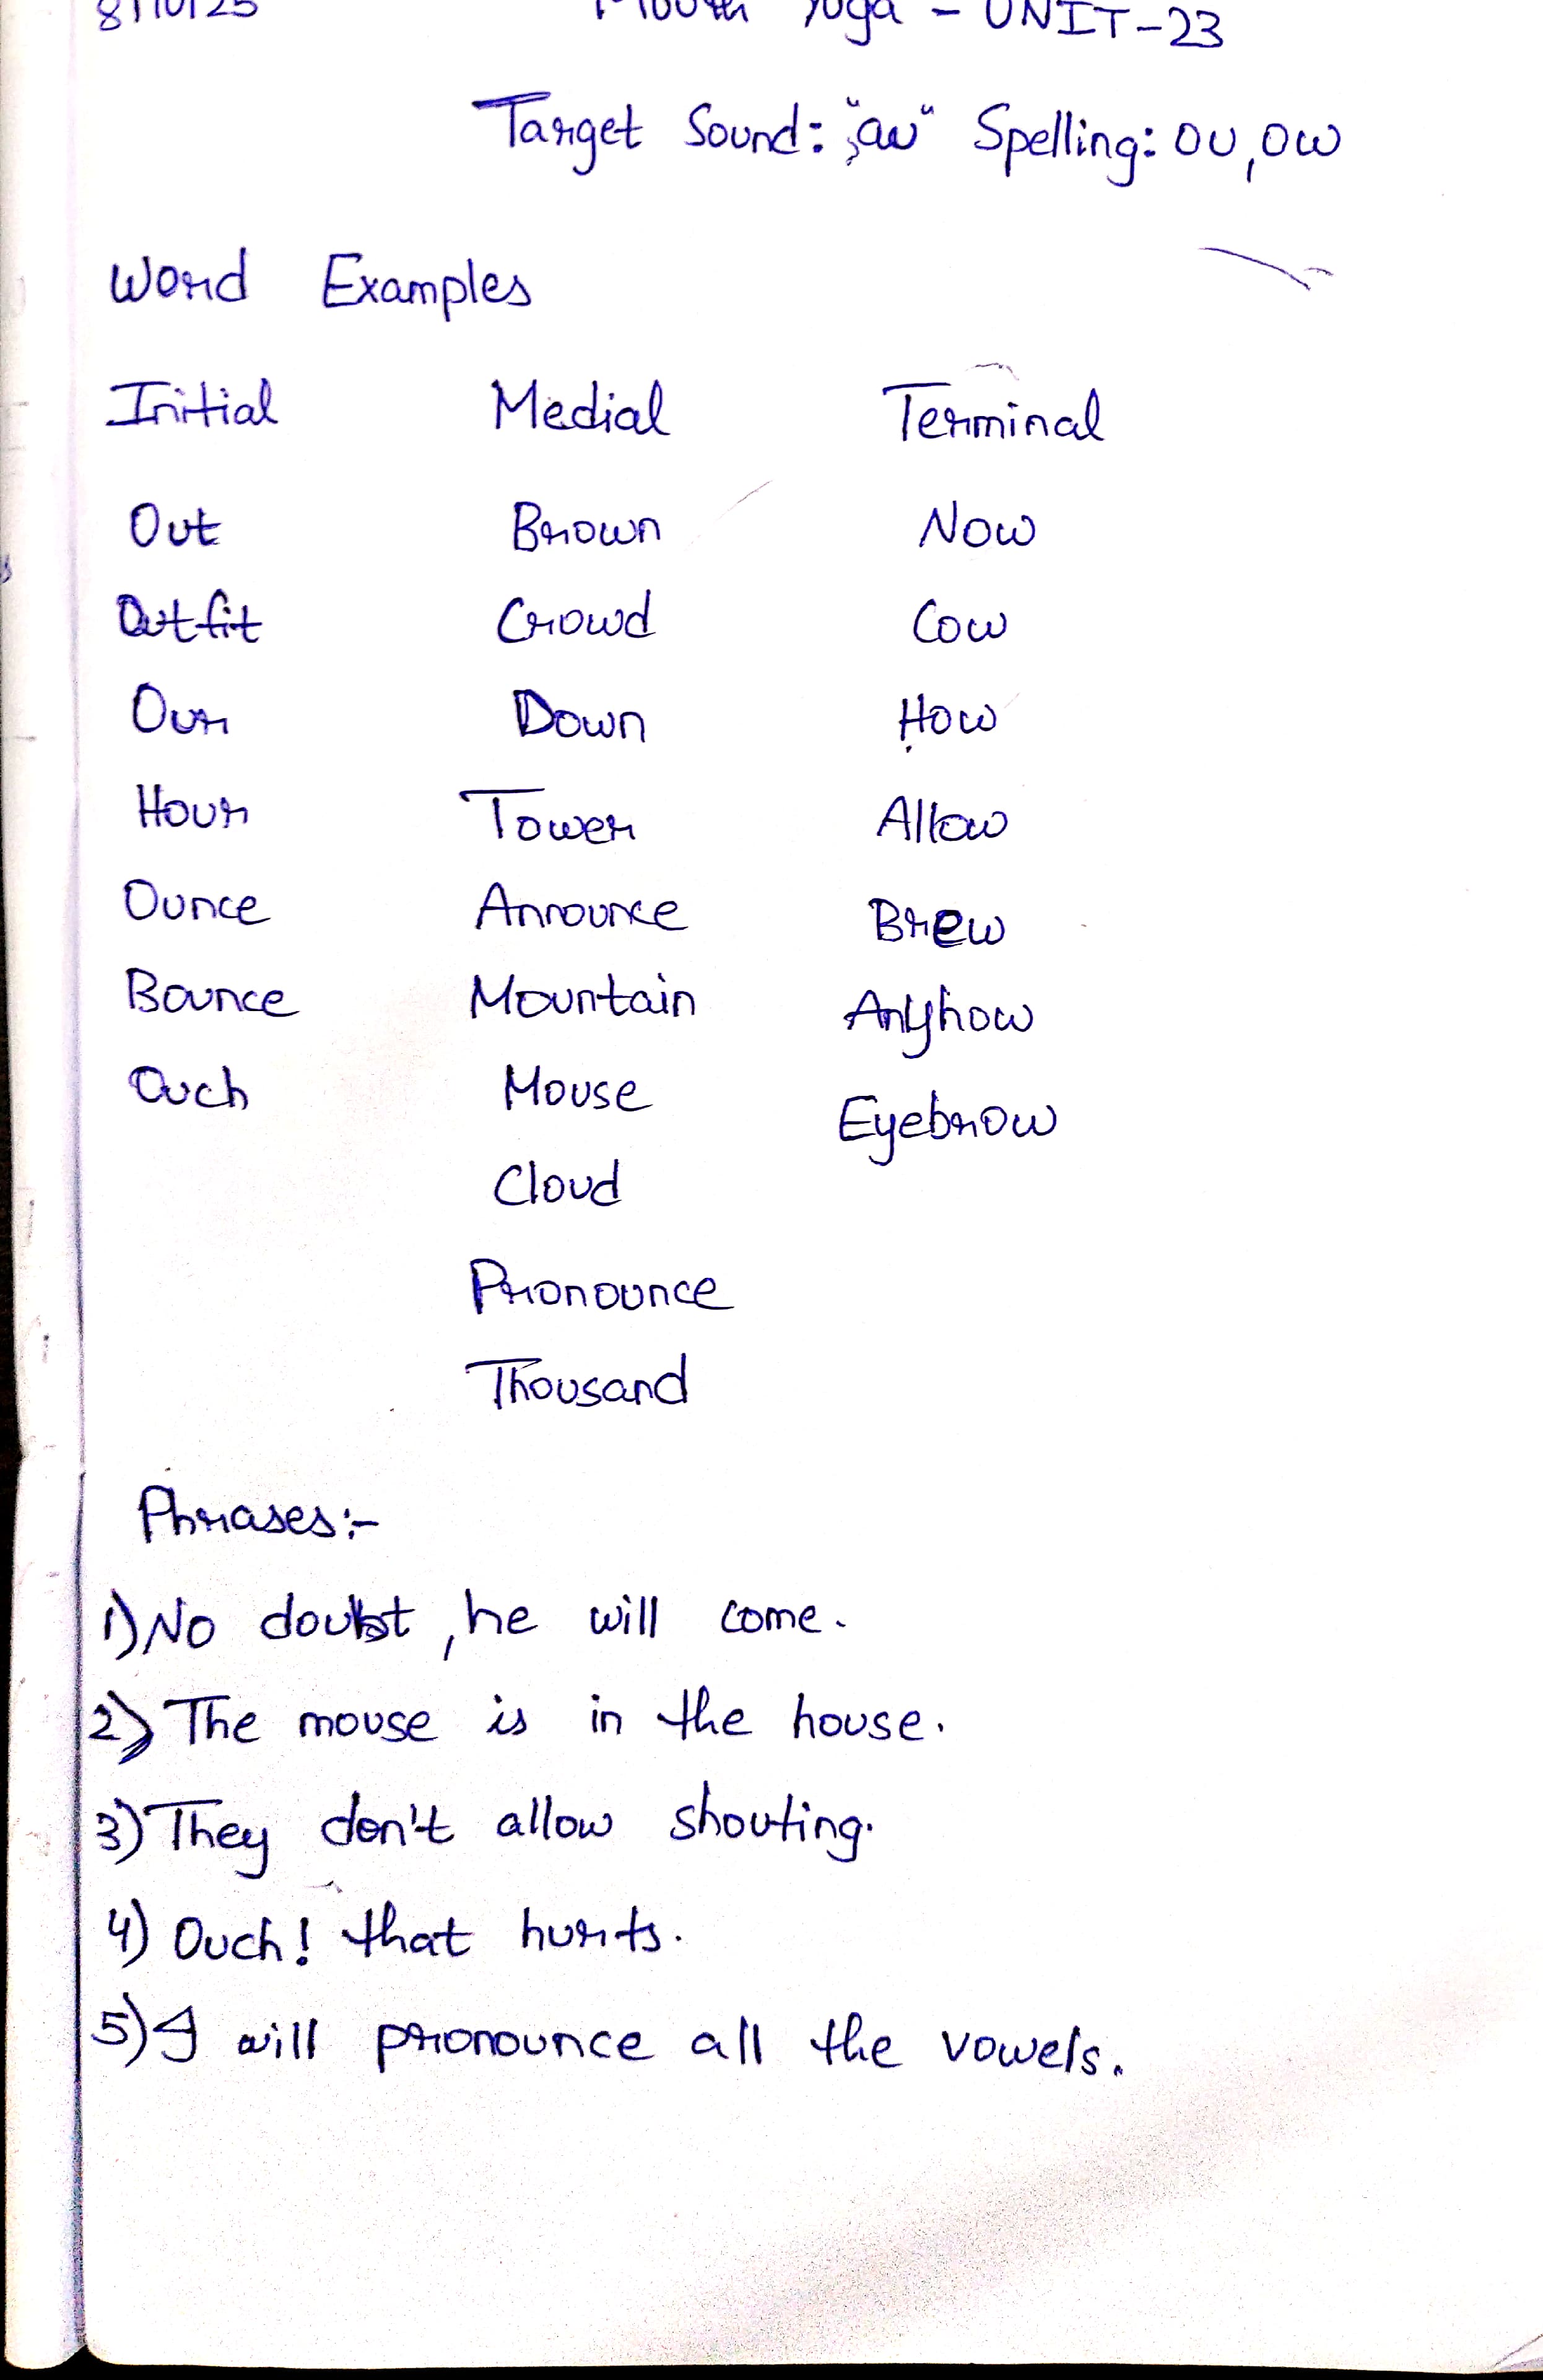 8/10/25 Mouth Yoga - UNIT-23
Target Sound: "au" Spelling: ou, ow
Word Examples
Initial Medial Terminal
Out Brown Now
Outfit Crowd Cow
Our Down How
Hour Tower Allow
Ounce Announce Brew
Bounce Mountain Anyhow
Ouch Mouse Eyebrow
Cloud
Pronounce
Thousand
Phrases:-
1) No doubt, he will come.
2) The mouse is in the house.
3) They don't allow shouting.
4) Ouch! that hurts.
5) I will pronounce all the vowels.